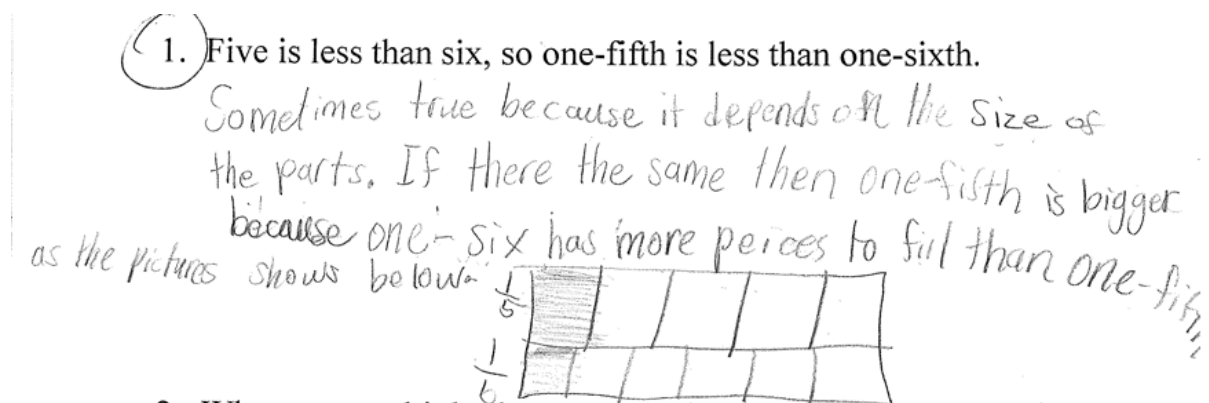 1. Five is less than six, so one-fifth is less than one-sixth.
Sometimes true because it depends on the size of
the parts. If there the same then one-fifth is bigger
because one-six has more peices to fiil than one-fifth
as the pictures shows below.
1/5
1/6